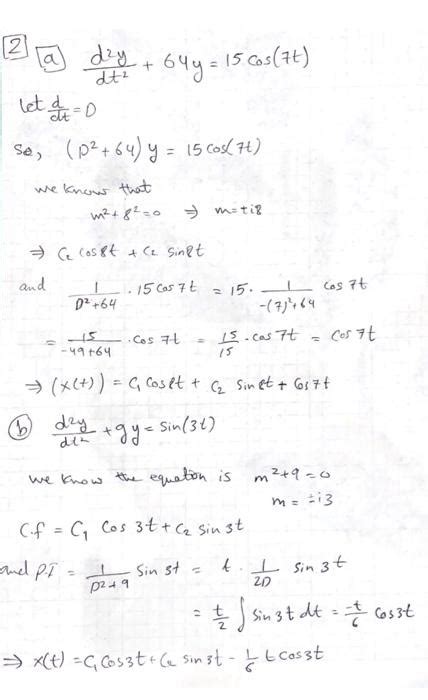 2 a d²y/dt² + 64y = 15 cos(7t)
let d/dt = D
so, (D²+64) y = 15 cos(7t)
we know that
m²+8²=0 ⇒ m=±i8
⇒ C₂ cos8t + C₂ sin8t
and 1/D²+64 · 15 cos 7t = 15 · 1/-(7)²+64 cos 7t
= 15/-49+64 · cos 7t = 15/15 · cos 7t = cos 7t
⇒ (x(t)) = C₁ cos8t + C₂ sin 8t + cos7t
b d²y/dt² + 9y = sin(3t)
we know the equation is m²+9=0
m = ±i3
C.f = C₁ cos 3t + C₂ sin 3t
and P.I = 1/D²+9 sin 3t = t · 1/2D sin 3t
= t/2 ∫ sin 3t dt = -t/6 cos3t
⇒ x(t) = C₁ cos3t + C₂ sin 3t - 1/6 t cos3t